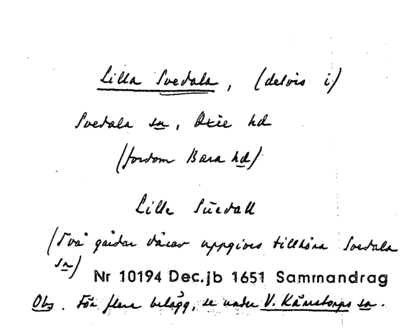 Lilla Svedala, (delvis i)
Svedala sn, Oxie hd
(fordom Bara hd)
Lille Suedall
(Två gårdar därav uppgives tillhöra Svedala
sn)
Nr 10194 Dec.jb 1651 Sammandrag
Obs. För flera belägg, se under V. Kärrstorps sn.